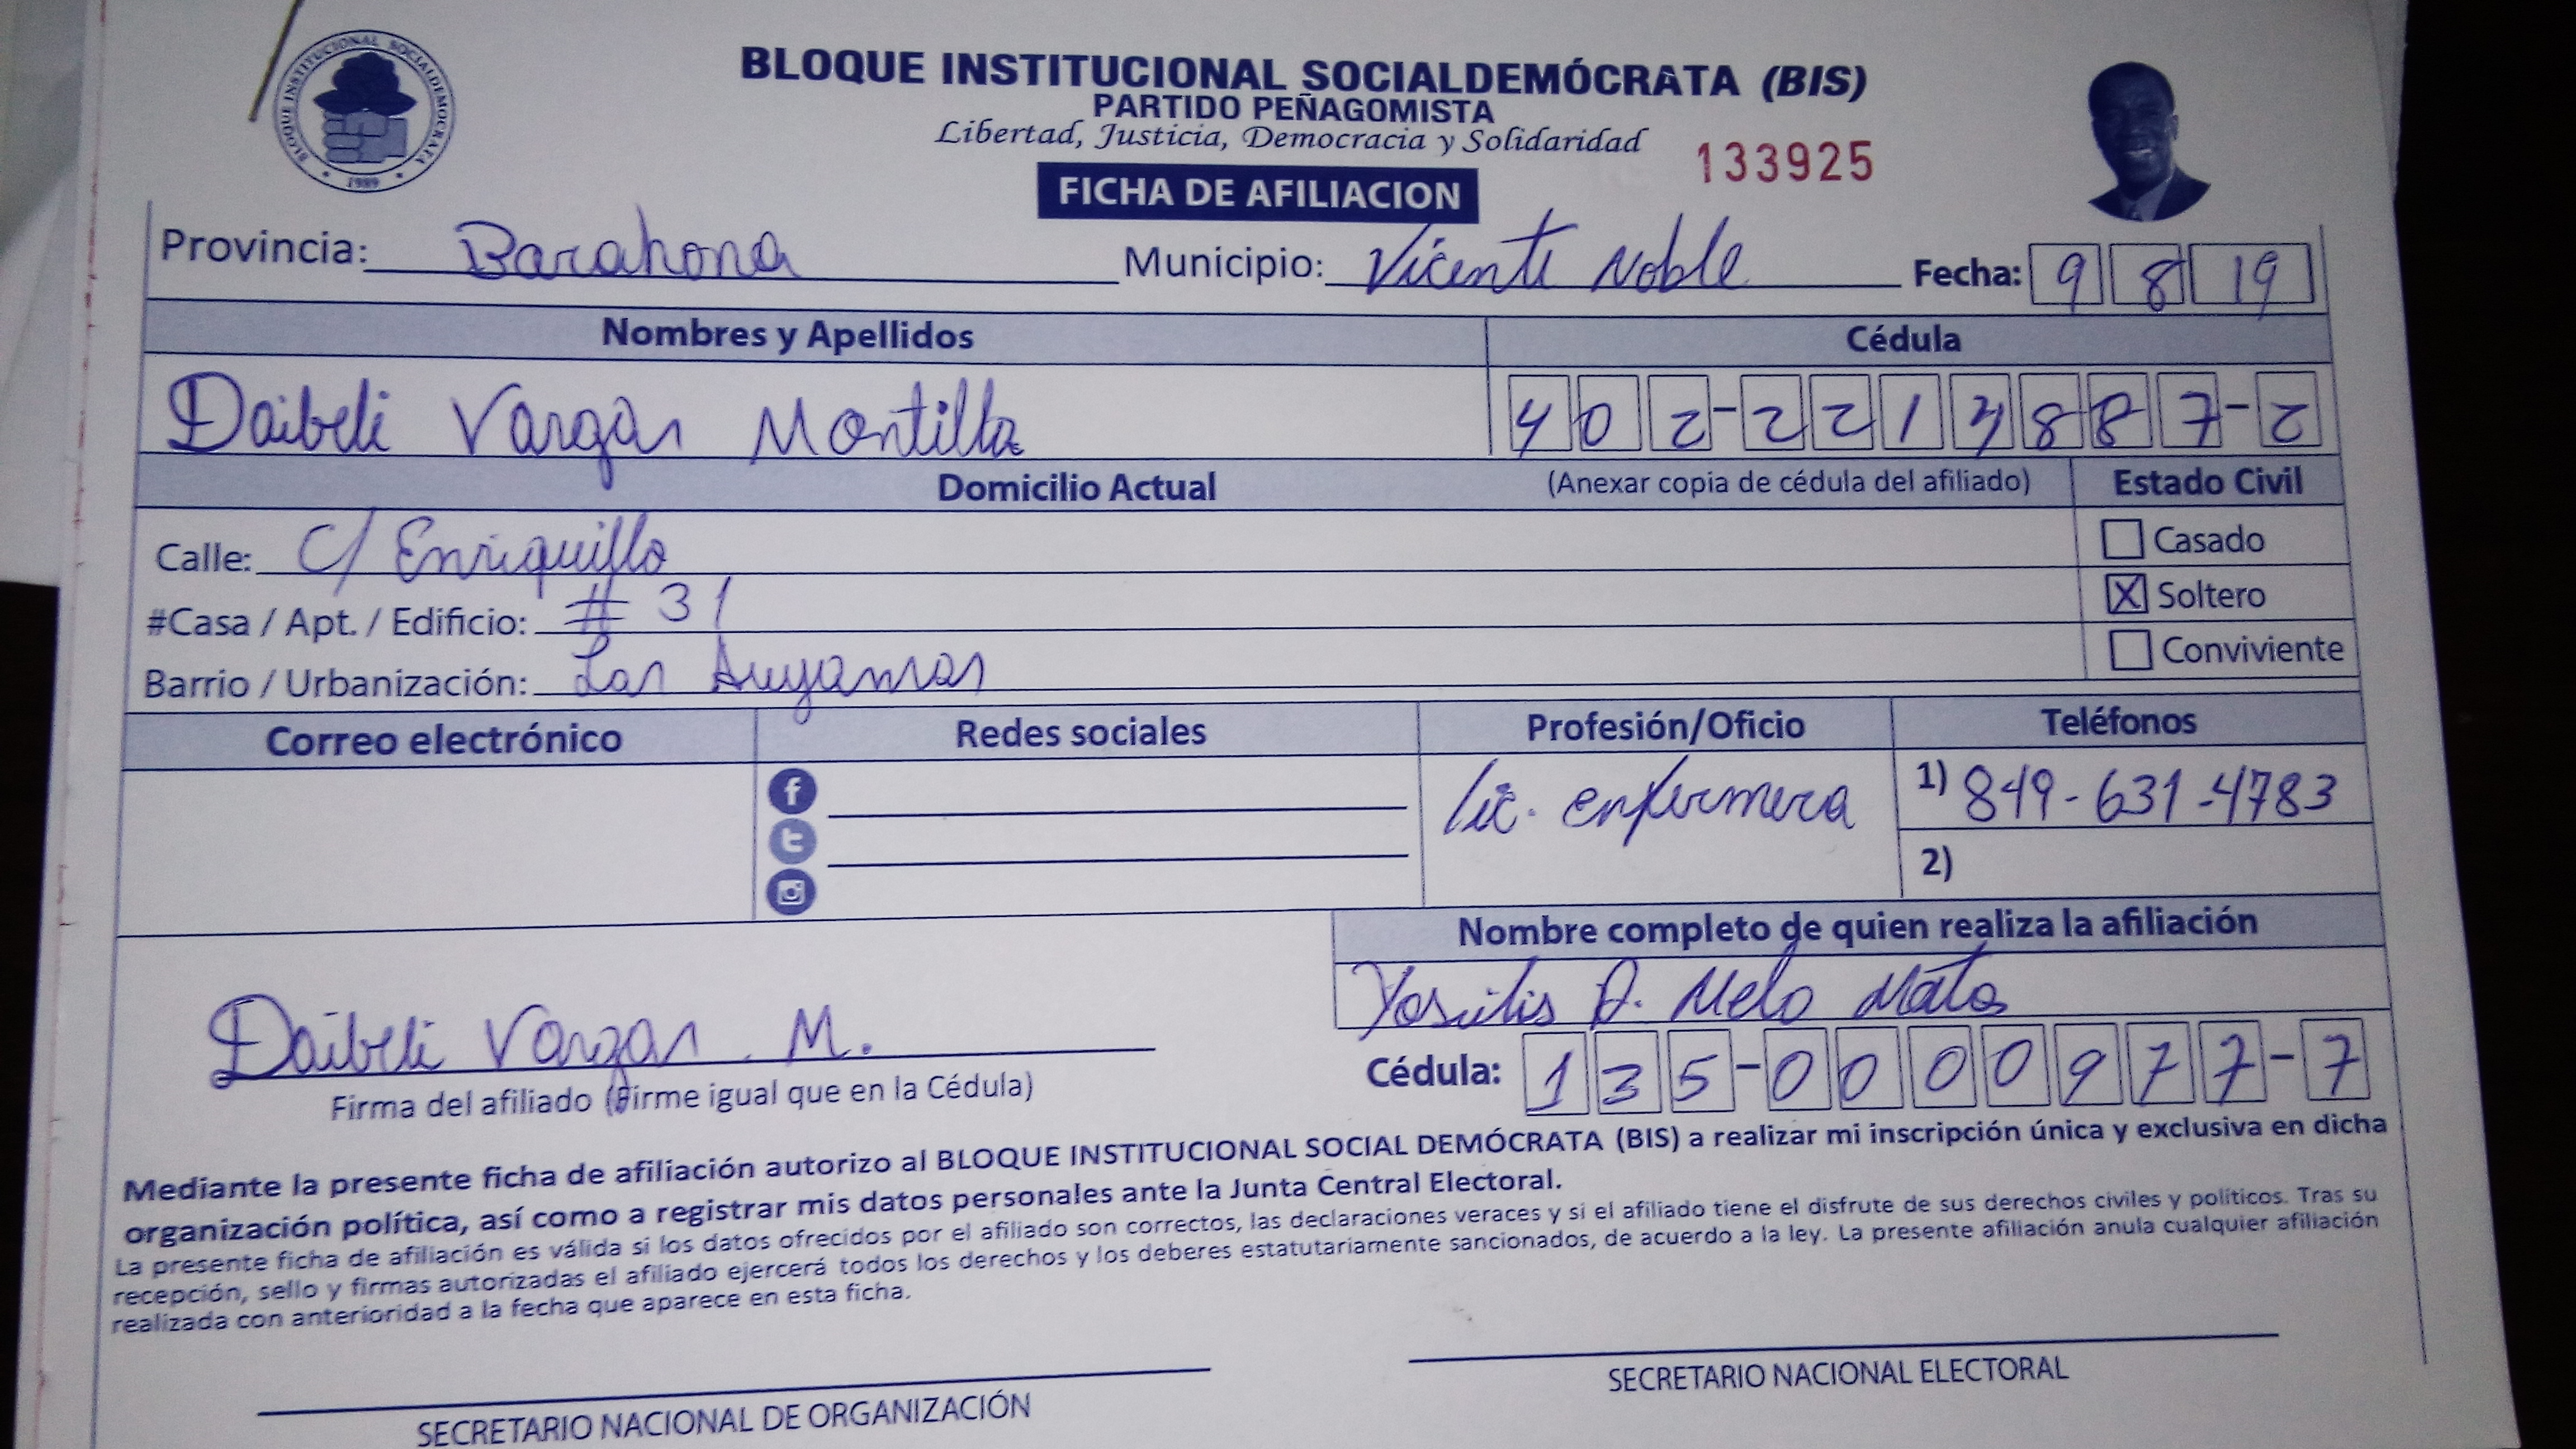 BLOQUE INSTITUCIONAL SOCIALDEMOCRATA
1989
BLOQUE INSTITUCIONAL SOCIALDEMÓCRATA (BIS)
PARTIDO PEÑAGOMISTA
Libertad, Justicia, Democracia y Solidaridad
133925
FICHA DE AFILIACION
Provincia: Barahona Municipio: Vicente Noble Fecha: 9 8 19
Nombres y Apellidos Cédula
Daibeli Vargas Montilla 402-2213887-2
Domicilio Actual (Anexar copia de cédula del afiliado) Estado Civil
Calle: C/ Enriquillo Casado
#Casa / Apt. / Edificio: # 31 X Soltero
Barrio / Urbanización: Las Auyamas Conviviente
Correo electrónico Redes sociales Profesión/Oficio Teléfonos
lic. enfermera 1) 849-631-4783
2)
Nombre completo de quien realiza la afiliación
Yosilis D. Melo Mato
Daibeli Vargas M.
Cédula: 135-0000977-7
Firma del afiliado (Firme igual que en la Cédula)
Mediante la presente ficha de afiliación autorizo al BLOQUE INSTITUCIONAL SOCIAL DEMÓCRATA (BIS) a realizar mi inscripción única y exclusiva en dicha
organización política, así como a registrar mis datos personales ante la Junta Central Electoral.
La presente ficha de afiliación es válida si los datos ofrecidos por el afiliado son correctos, las declaraciones veraces y si el afiliado tiene el disfrute de sus derechos civiles y políticos. Tras su
recepción, sello y firmas autorizadas el afiliado ejercerá todos los derechos y los deberes estatutariamente sancionados, de acuerdo a la ley. La presente afiliación anula cualquier afiliación
realizada con anterioridad a la fecha que aparece en esta ficha.
SECRETARIO NACIONAL DE ORGANIZACIÓN SECRETARIO NACIONAL ELECTORAL